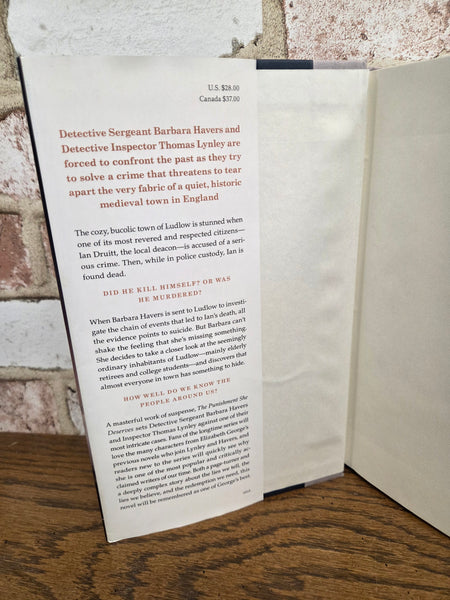 U.S. $28.00
Canada $37.00
Detective Sergeant Barbara Havers and
Detective Inspector Thomas Lynley are
forced to confront the past as they try
to solve a crime that threatens to tear
apart the very fabric of a quiet, historic
medieval town in England
The cozy, bucolic town of Ludlow is stunned when
one of its most revered and respected citizens—
Ian Druitt, the local deacon—is accused of a seri-
ous crime. Then, while in police custody, Ian is
found dead.
DID HE KILL HIMSELF? OR WAS
HE MURDERED?
When Barbara Havers is sent to Ludlow to investi-
gate the chain of events that led to Ian's death, all
the evidence points to suicide. But Barbara can't
shake the feeling that she's missing something.
She decides to take a closer look at the seemingly
ordinary inhabitants of Ludlow—mainly elderly
retirees and college students—and discovers that
almost everyone in town has something to hide.
HOW WELL DO WE KNOW THE
PEOPLE AROUND US?
A masterful work of suspense, The Punishment She
Deserves sets Detective Sergeant Barbara Havers
and Inspector Thomas Lynley against one of their
most intricate cases. Fans of the longtime series will
love the many characters from Elizabeth George's
previous novels who join Lynley and Havers, and
readers new to the series will quickly see why
she is one of the most popular and critically ac-
claimed writers of our time. Both a page-turner and
a deeply complex story about the lies we tell, the
lies we believe, and the redemption we need, this
novel will be remembered as one of George's best.